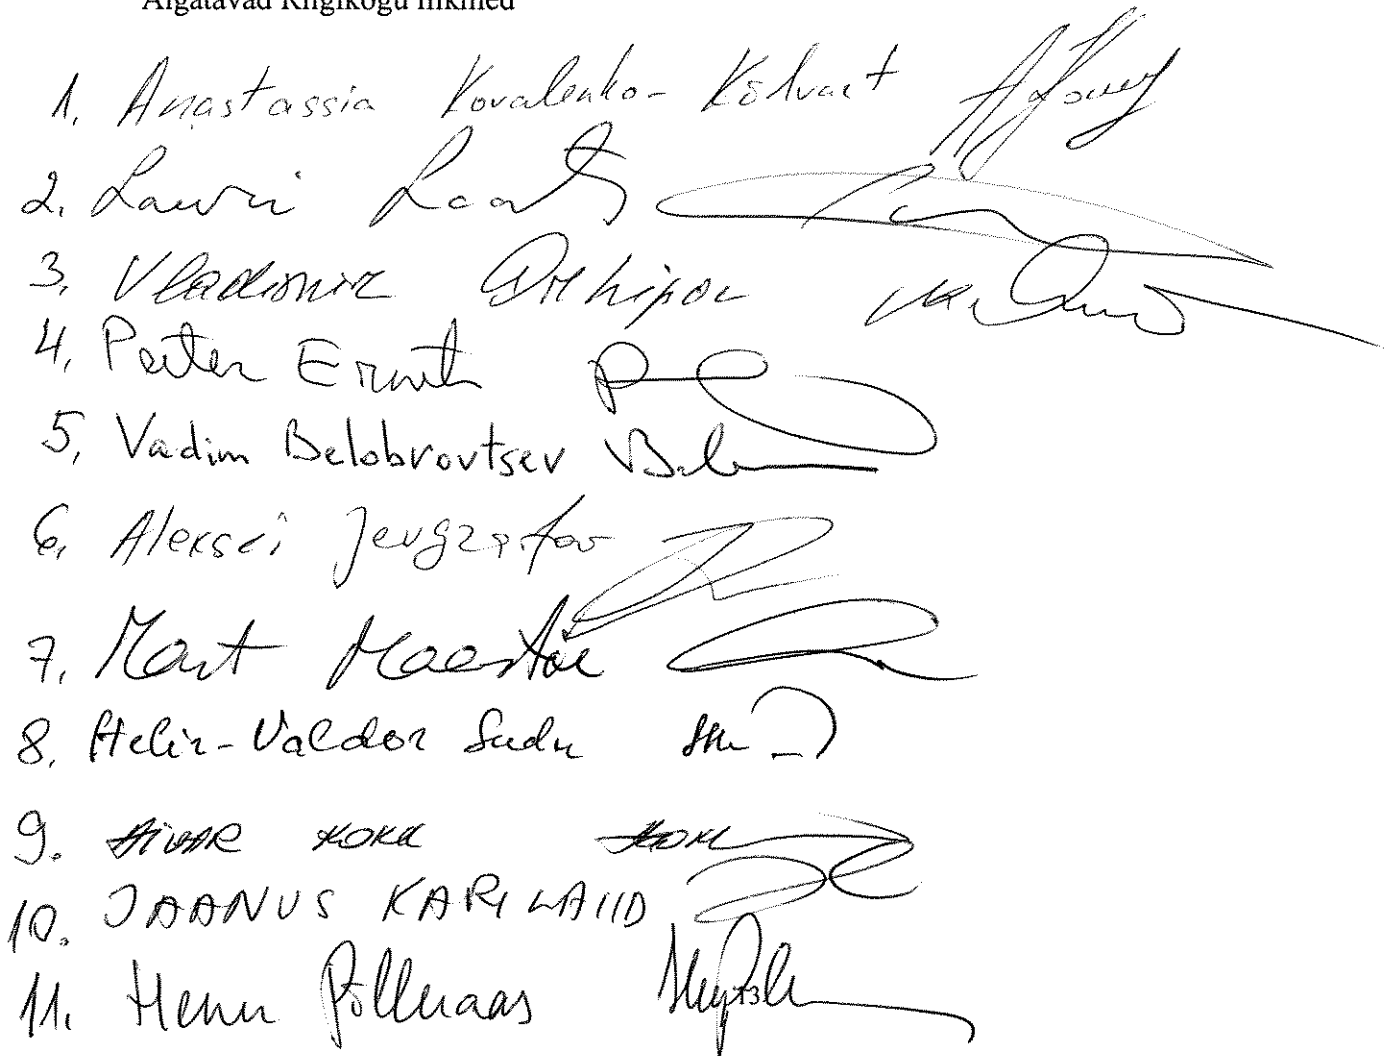 Algatavad Riigikogu liikmed
1. Anastassia Kovalenko-Kõlvart
2. Lauri Laats
3. Vladimir Arhipov
4. Peeter Ernits
5. Vadim Belobrovtsev
6. Aleksei Jevgrafov
7. Mart Maastik
8. Helir-Valdor Seeder
9. AIVAR KOKK
10. JAANUS KARILAID
11. Henn Põlluaas
13